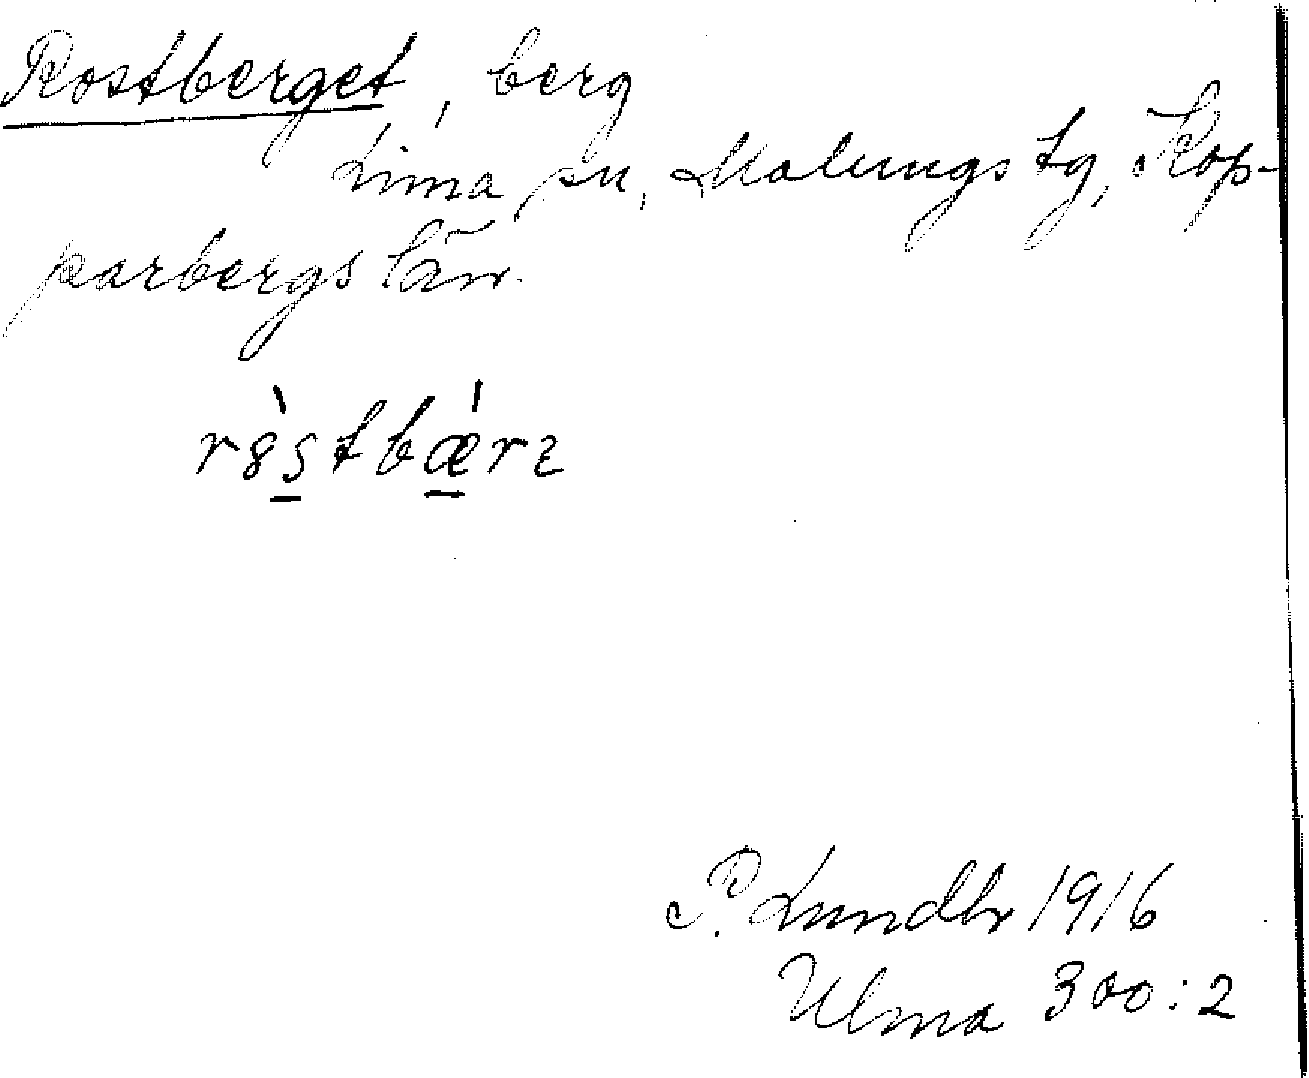 Rostberget, berg
Lima sn, Malungs tg, Kop-
parbergs län.
P. Lundbr 1916
Ulma 300:2